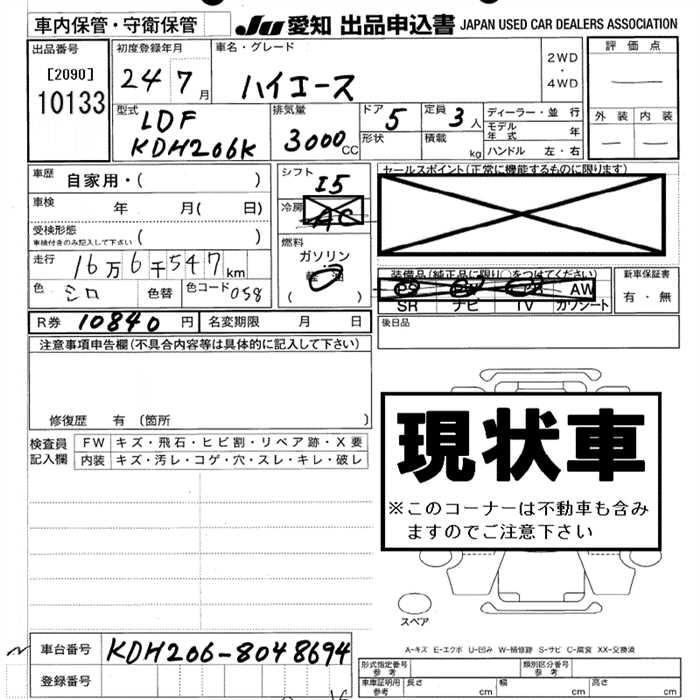 車内保管・守衛保管
JU 愛知 出品申込書 JAPAN USED CAR DEALERS ASSOCIATION
出品番号
[2090]
10133
初度登録年月
24 7月
車名・グレード
ハイエース
2WD
・
4WD
評価点
外装 内装
型式
LDF
KDH206K
排気量
3000CC
ドア 5
形状
定員 3人
積載 kg
ディーラー・並行
モデル年式 年
ハンドル 左・右
車歴 自家用・( )
車検 年 月( 日)
受検形態
車検付きのみ記入して下さい ( )
走行 16万6千547km
色 シロ 色替 色コード 058
シフト
I5
冷房
AC
燃料
ガソリン
軽油
( )
セールスポイント(正常に機能するものに限ります)
装備品(純正品に限り○をつけてください)
AW
SR ナビ TV カワシート
新車保証書
有・無
R券 10840円 名変期限 月 日
後日品
注意事項申告欄(不具合内容等は具体的に記入して下さい)
修復歴 有 (箇所 )
検査員
記入欄
FW キズ・飛石・ヒビ割・リペア跡・X要
内装 キズ・汚レ・コゲ・穴・スレ・キレ・破レ
現状車
※このコーナーは不動車も含み
ますのでご注意下さい
スペア
A-キズ E-エクボ U-凹み W-補修跡 S-サビ C-腐食 XX-交換済
車台番号 KDH206-8048694
登録番号
型式指定番号
参考
類別区分番号
参考
車庫証明用
参考
長さ cm 幅 cm 高さ cm